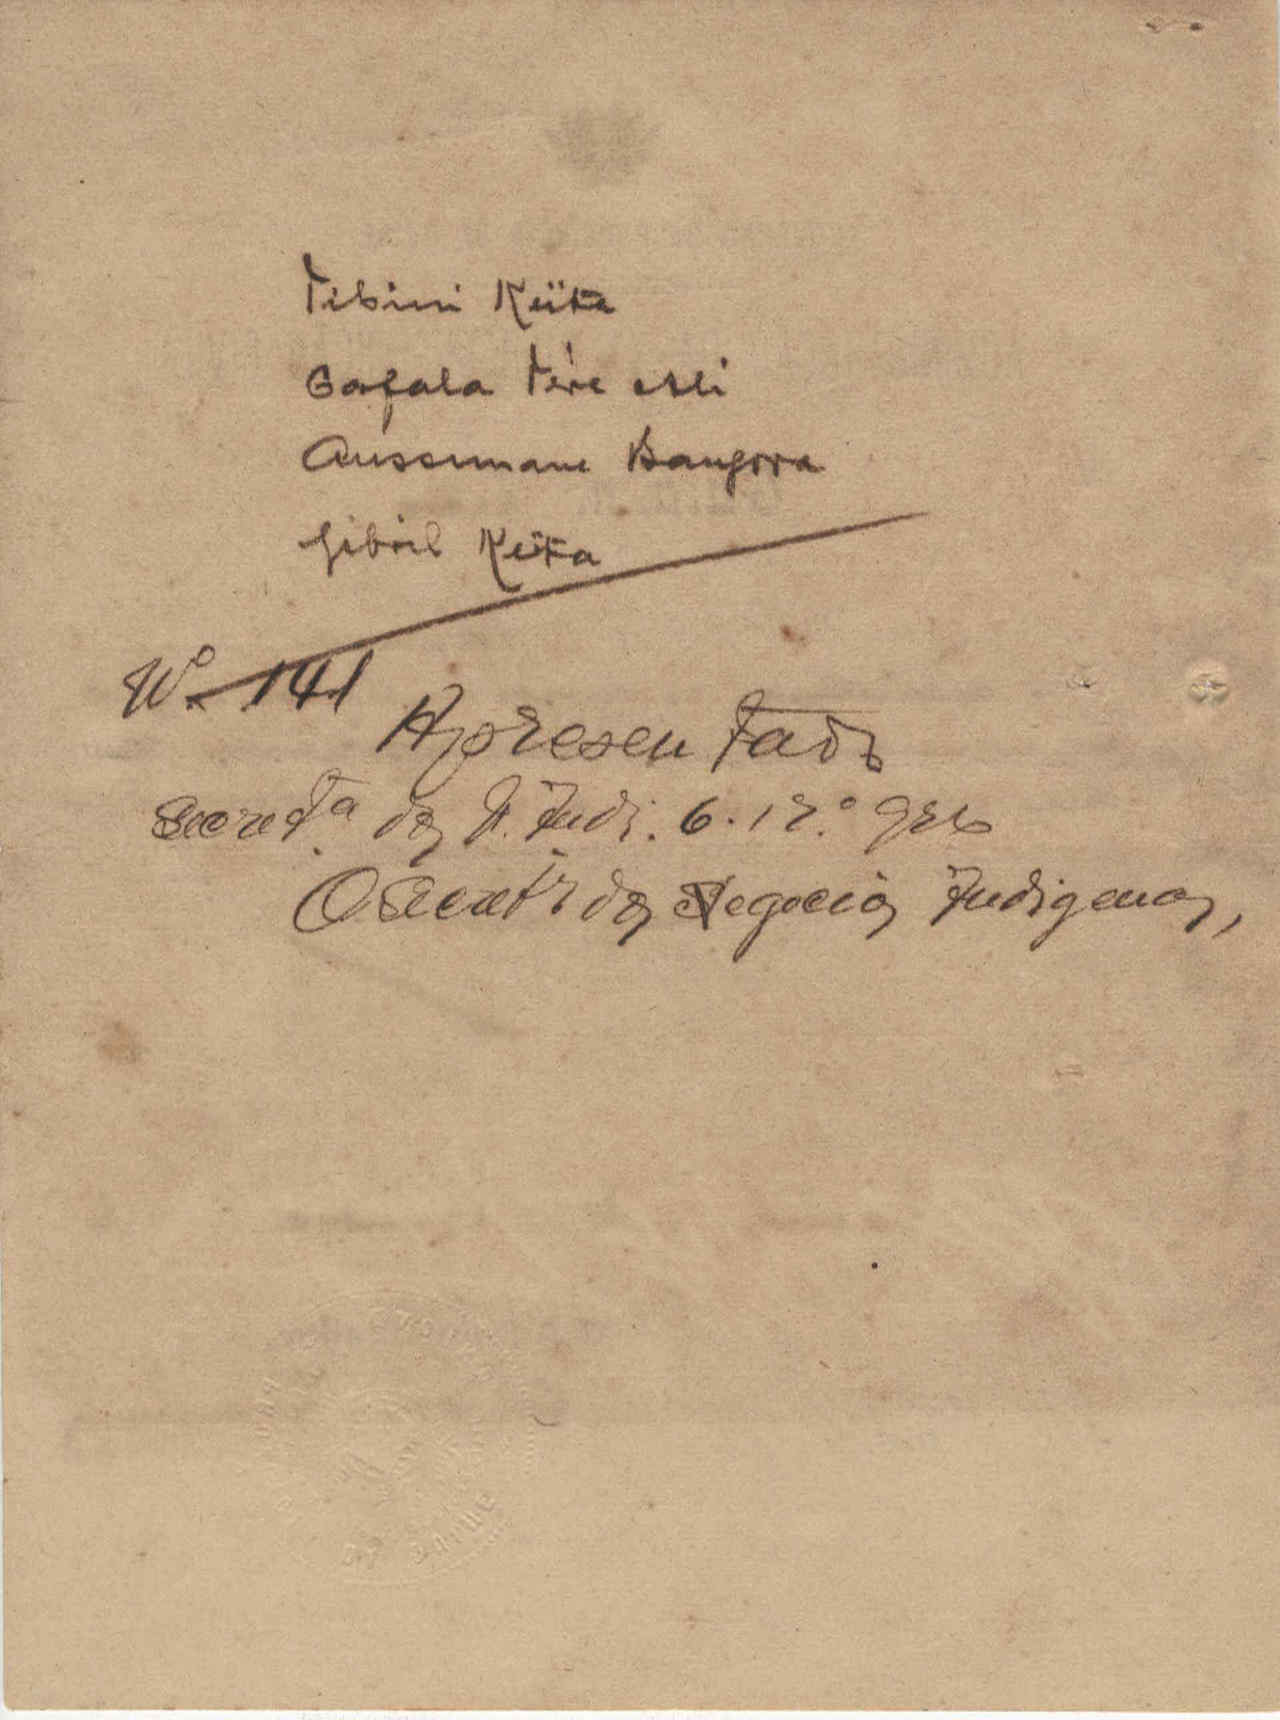 Tibini Keita
Gafala Fere Ali
Aussumane Bangora
Gibril Keita
Nº 141
Apresentado
Secretª dos N. Indi. 6.12.º 926
O Secretrº dos Negocios Indigenas,